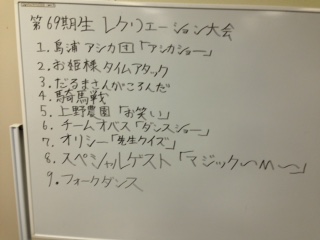 第69期生 レクリエーション大会
1. 島浦アシカ団「アシカショー」
2. お姫様タイムアタック
3. だるまさんがころんだ
4. 騎馬戦
5. 上野農園「お笑い」
6. チームオベス「ダンスショー」
7. オリシー「先生クイズ」
8. スペシャルゲスト「マジック〜M〜」
9. フォークダンス